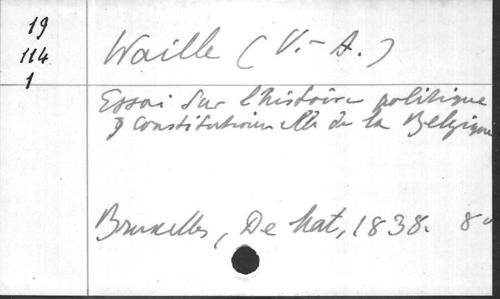 19
114
1
Waille (V.-A.)
Essai sur l'histoire politique
& constitutionnelle de la Belgique
Bruxelles, De Mat, 1838. 8°